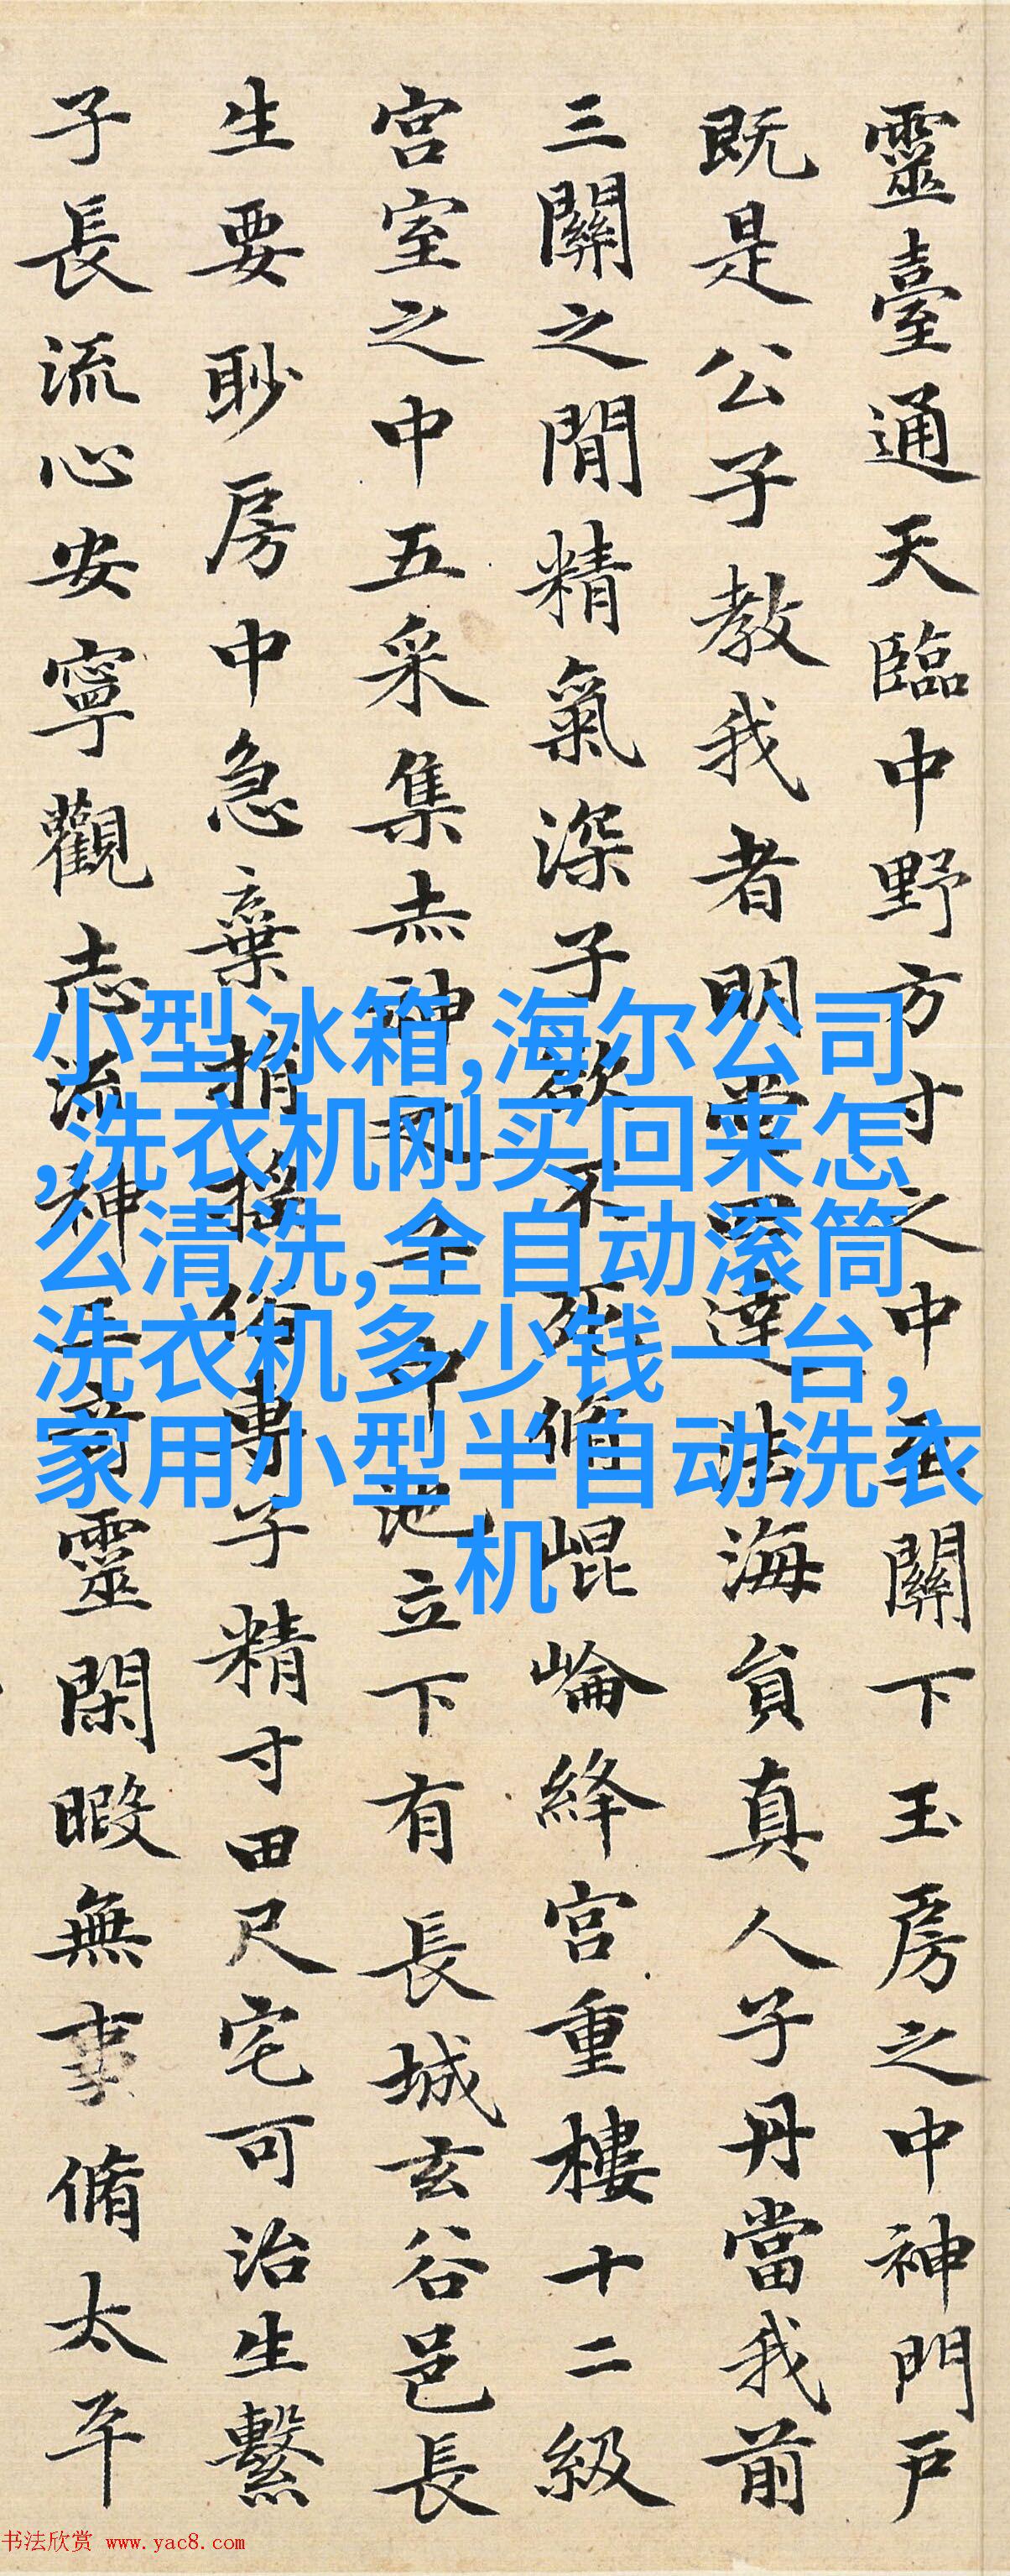 靈臺通天臨中野方寸之中至關下玉房之中神門戶
既是公子教我者明堂四達法海員真人子丹當我前
三關之閒精氣深子欲不死脩崐崘絳宮重樓十二級
宮室之中五采集赤神之子中池立下有長城玄谷邑長
生要眇房中急棄捐搖俗專子精寸田尺宅可治生繫
子長流心安寧觀志流神三奇靈閑暇無事脩太平
小型冰箱,海尔公司
,洗衣机刚买回来怎
么清洗,全自动滚筒
洗衣机多少钱一台,
家用小型半自动洗衣
机
书法欣赏 www.yac8.com